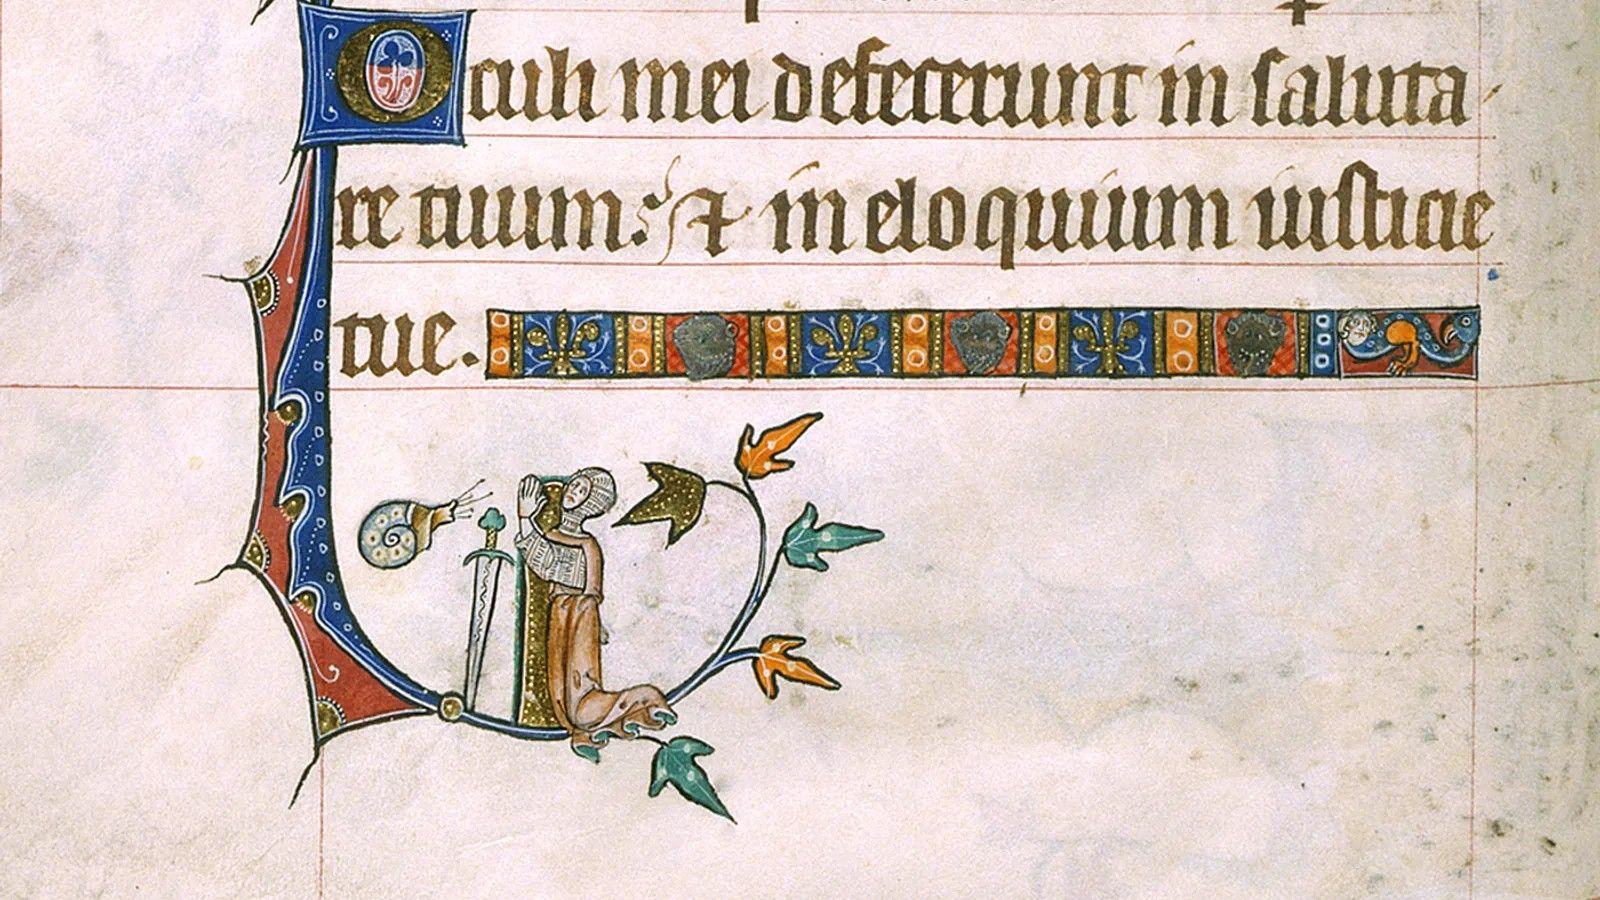 Oculi mei defecerunt in saluta
re tuum: et in eloquium iusticie
tue.